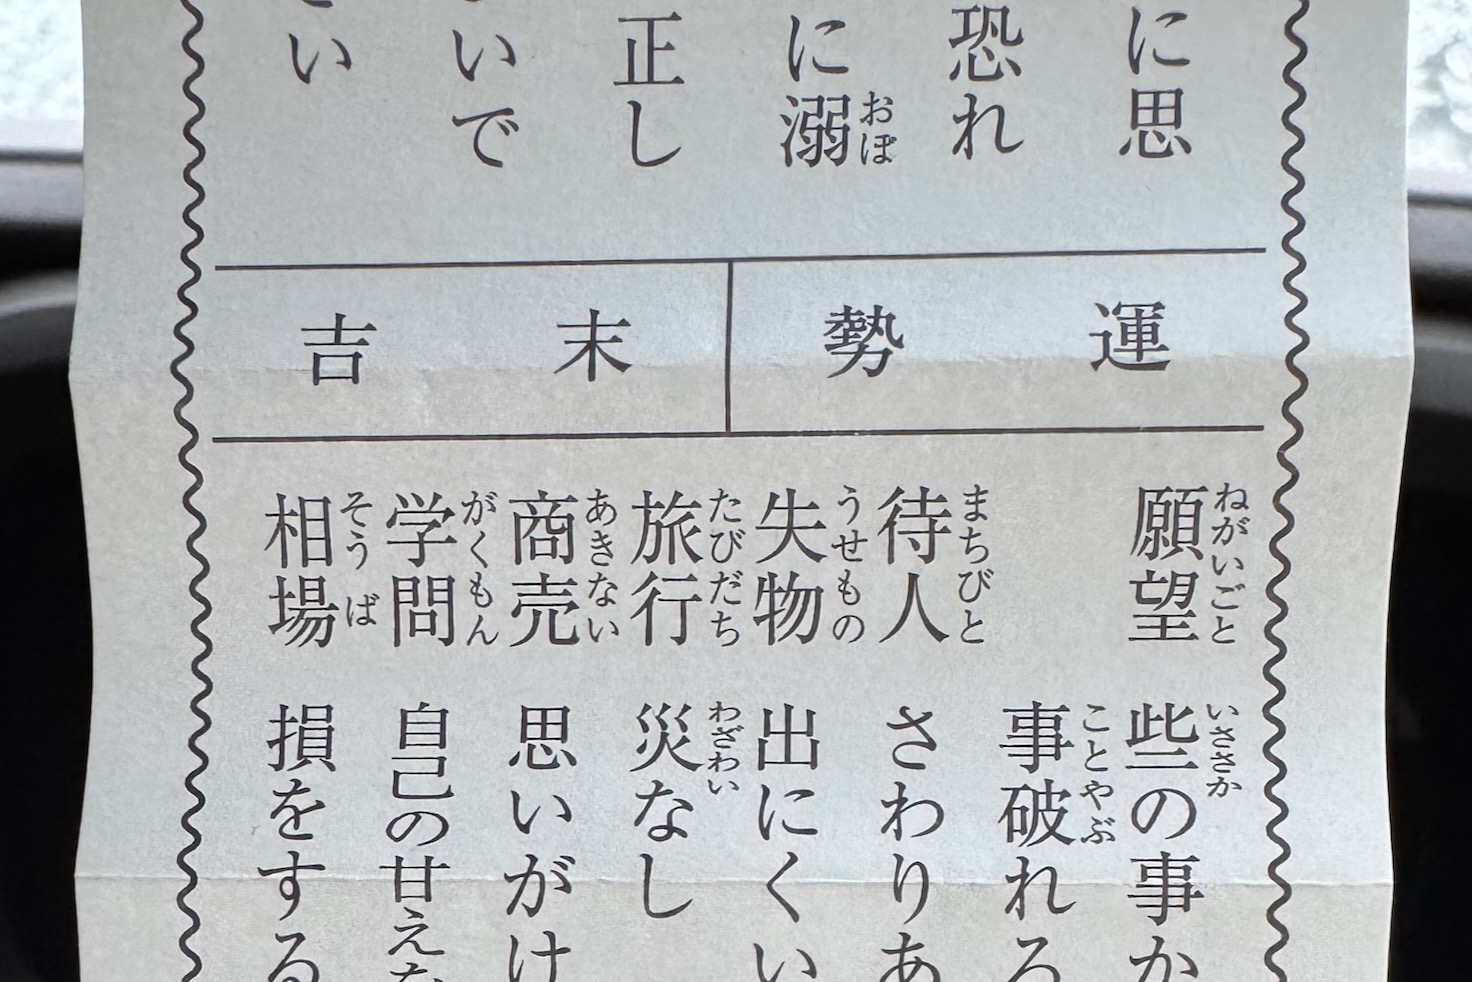 に思
恐れ
に溺
おぼ
正し
いで
い
運勢
末吉
願望
ねがいごと
些の事か
いささか
事破れる
ことやぶ
待人
まちびと
さわりあ
失物
うせもの
出にくい
旅行
たびだち
災なし
わざわい
商売
あきない
思いがけ
学問
がくもん
自己の甘えな
相場
そうば
損をする